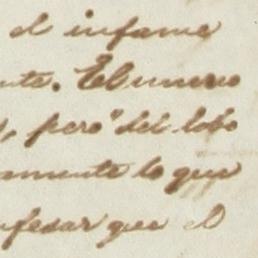 el infame
nte. El mereo
, pero "del lobo
amente lo que
nfesar que el